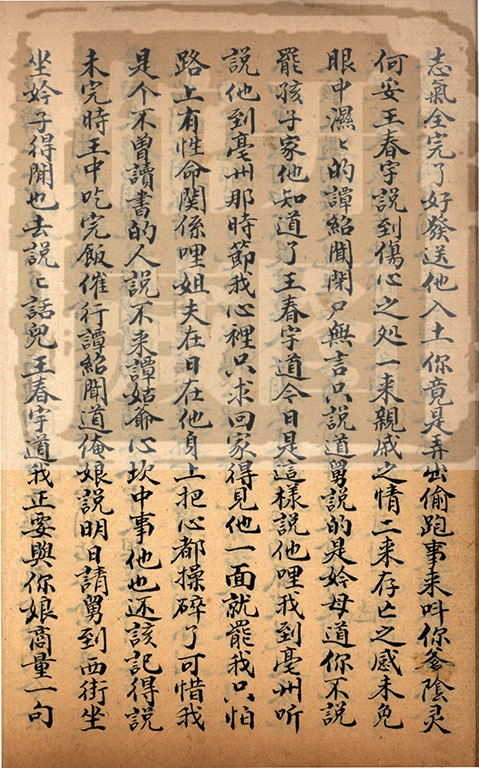 志氣全完了好發送他入土你竟是弄出偷跑事来呌你爹陰灵
何妥王春宇說到傷心之処一来親戚之情二来存亡之感未免
眼中濕〻的譚紹聞閉户無言只說道舅說的是妗母道你不說
罷孩子家他知道了王春宇道今日是這樣說他哩我到亳州听
說他到亳州那時節我心裡只求回家得見他一面就罷我只怕
路上有性命関係哩姐夫在日在他身上把心都操碎了可惜我
是个不曽讀書的人說不来譚姑爺心坎中事他也还該記得說
未完時王中吃完飯催行譚紹聞道俺娘說明日請舅到西街坐
坐妗子得閒也去說〻話兒王春宇道我正要與你娘商量一句